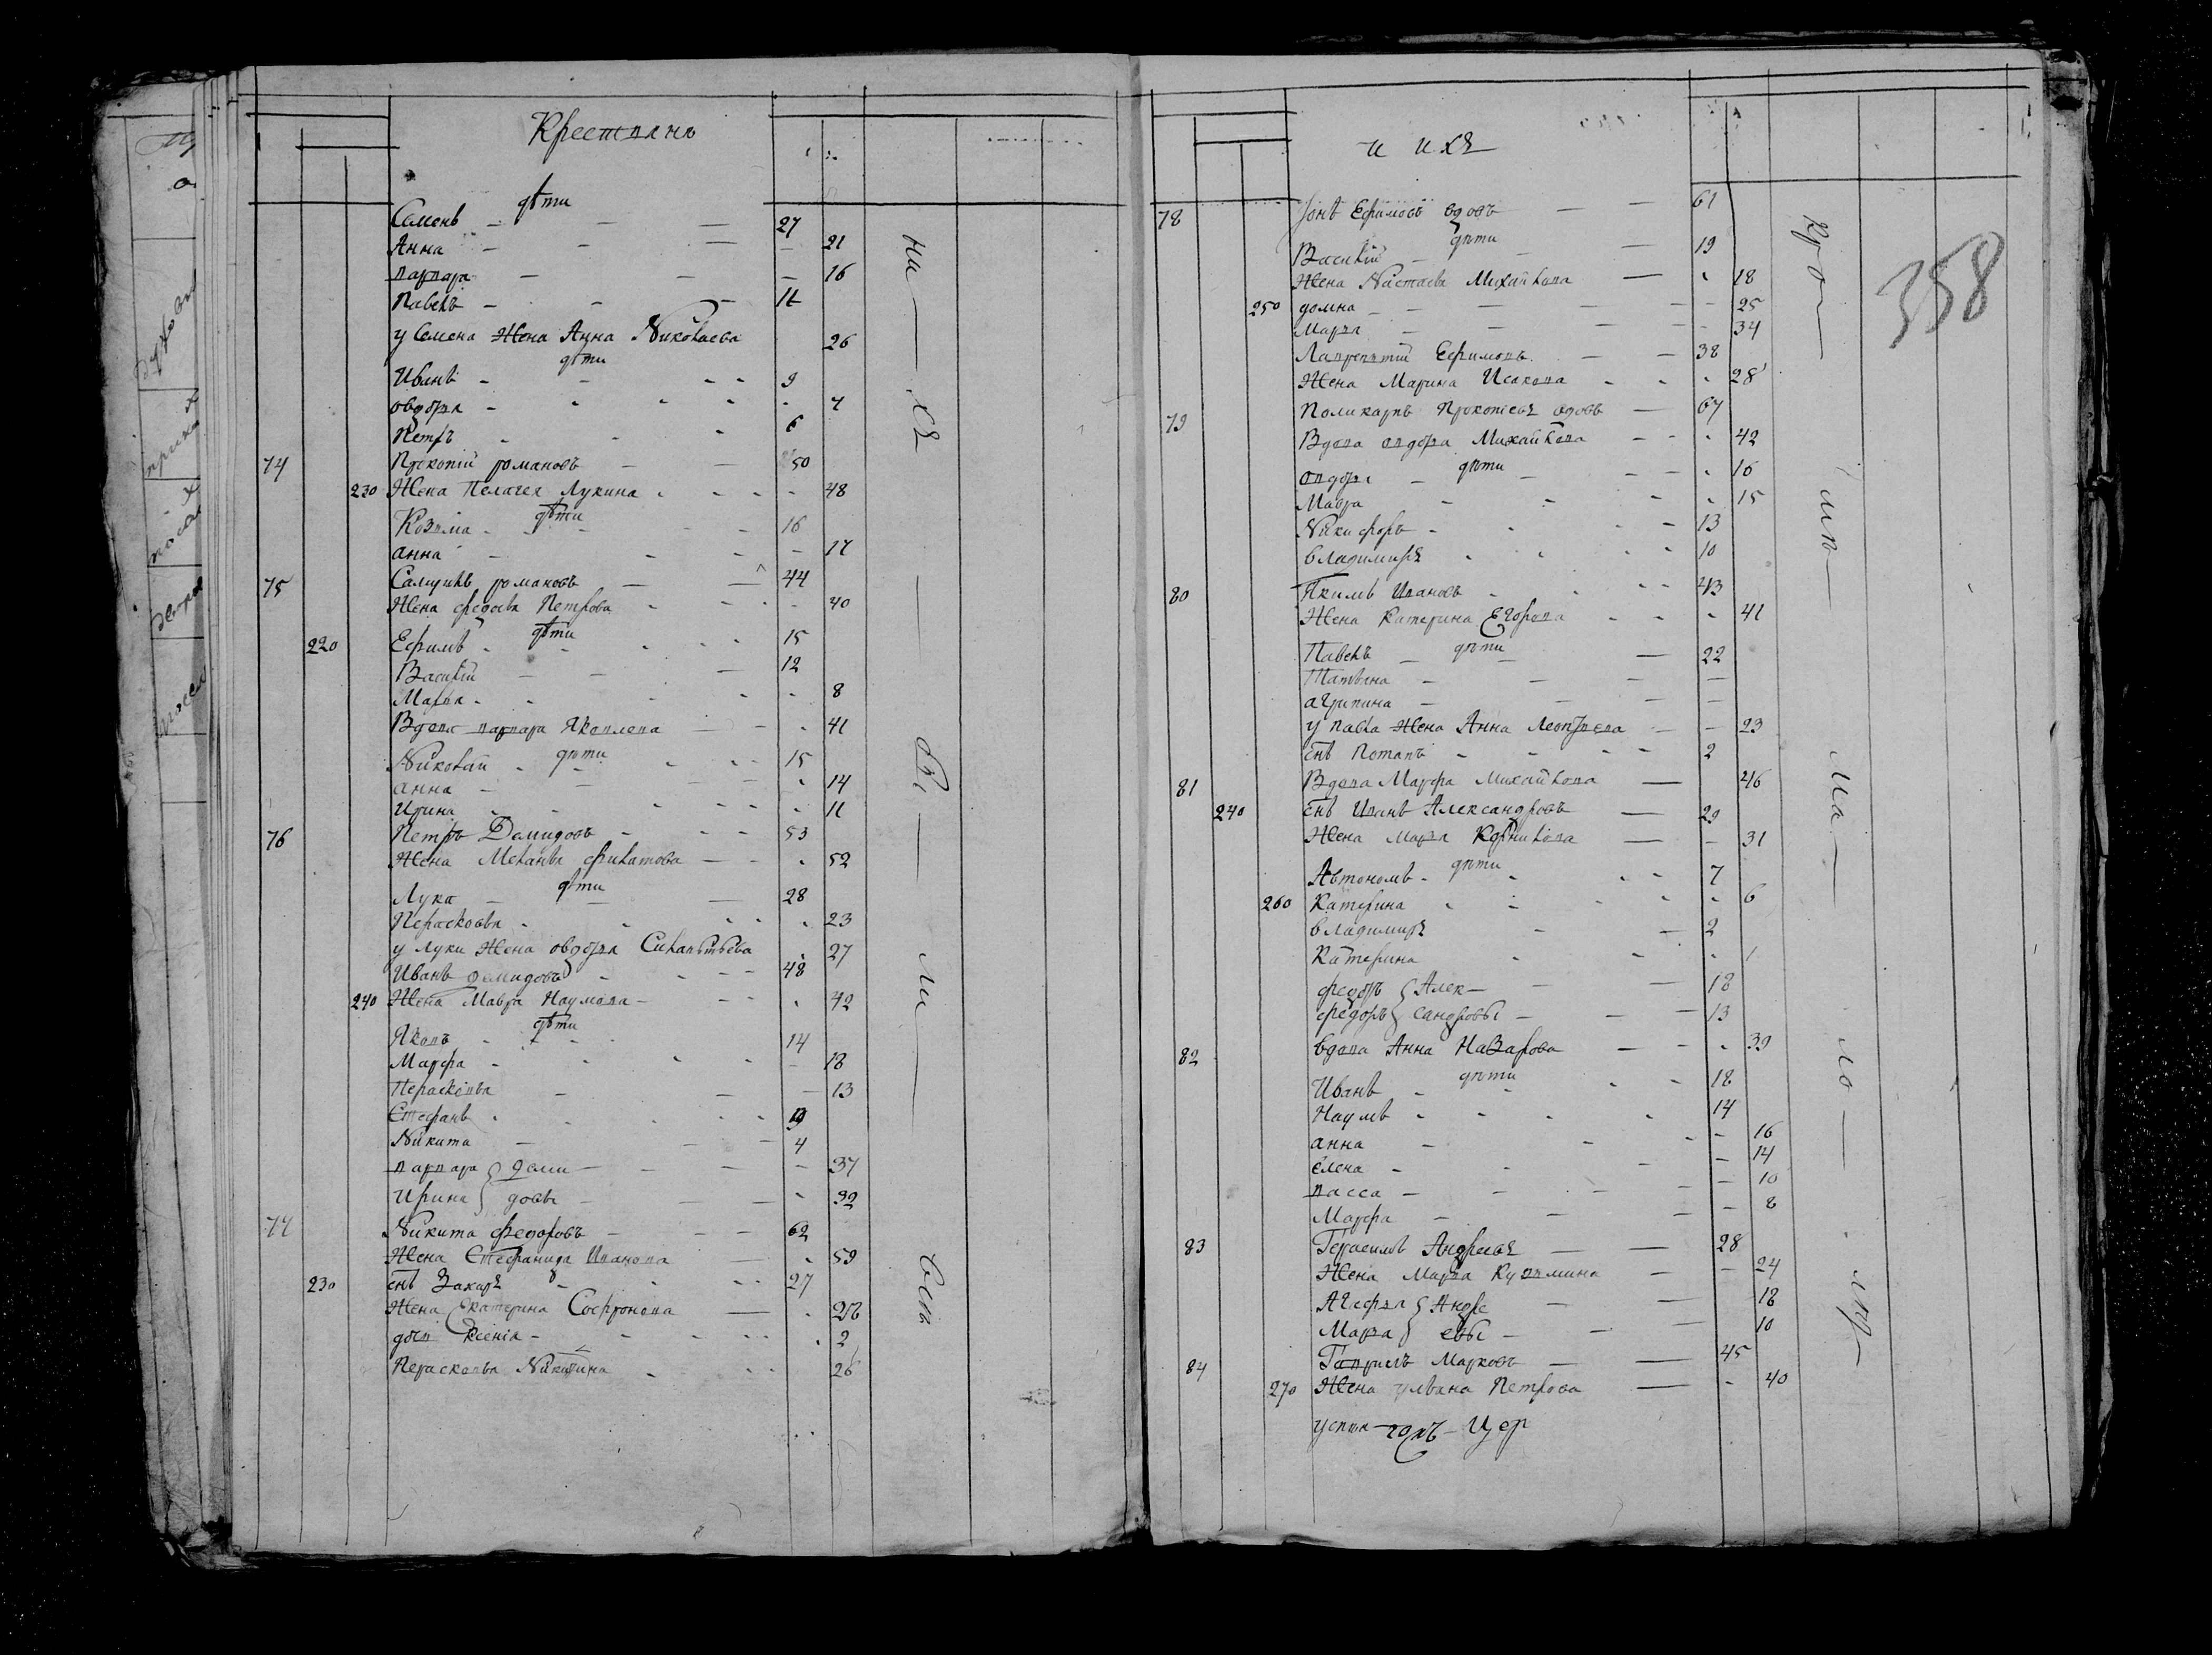 Крестьянъ
дѣти
Семенъ 27
Анна 21
варвара 16
Павелъ 11
у Семена Жена Анна Николаева 26
дѣти
Иванъ 9
овдотья 7
Петръ 6
74 Прокопій романовъ 50
230 Жена Пелагея Лукина 48
дѣти
Козьма 16
анна 17
75 Самуилъ романовъ 44
Жена федосья Петрова 40
дѣти
220 Ефимъ 15
Василій 12
Марья 8
Вдова варвара Яковлева 41
дѣти
Николай 15
анна 14
Ирина 11
76 Петръ Демидовъ 53
Жена Меланья филатова 52
дѣти
Лука 28
Персковья 23
у луки Жена овдотья 27
Иванъ демидовъ 48
240 Жена Мавра Наумова 42
дѣти
Яковъ 14
Марфа 18
Персковья 13
Стефанъ
Никита 4
варвара деми 37
Ирина довы 32
77 Никита федоровъ 62
Жена Стефанида Иванова 59
230 снъ Захаръ 27
Жена Екатерина Софронова 28
дочь Ксенія 2
Персковья Никитина 26
ни хъ бы ли вси
и ихъ
358
78 Іонъ Ефимовъ вдовъ 61
дѣти
Василій 19
Жена Настасья Михайлова 18
250 домна 25
Марья 34
Лаврентій Ефимовъ 38
Жена Марина Исакова 28
79 Поликарпъ Прокопьевъ вдовъ 67
Вдова овдотья Михайлова 42
дѣти
овдотья 16
Мавра 15
Никифоръ 13
владимиръ 10
80 Якимъ Ивановъ 43
Жена Катерина Егорова 41
дѣти
Павелъ 22
Татьяна
агрипина
у павла Жена Анна Леонтьева 23
снъ Потапъ 2
81 Вдова Марфа Михайлова 46
240 снъ Иванъ Александровъ 29
Жена Марья Корнилова 31
дѣти
Автономъ 7
260 Катерина 6
владимиръ 2
Катерина 1
федоръ Алек 18
федоръ сандровы 13
82 вдова Анна Назарова 39
дѣти
Иванъ 18
Наумъ 14
анна 16
елена 14
васса 10
Марфа 8
83 Герасимъ Андреевъ 28
Жена Марья Кузьмина 24
Агафья Андре 18
Марья евы 10
84 Гаврилъ Марковъ 45
270 Жена ульяна Петрова 40
Кро ма ло